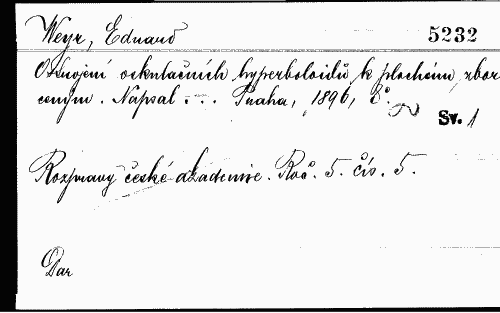 Weyr, Eduard 5232
O strojení oskulačních hyperboloidů k plochám zbor-
ceným. Napsal ... Praha, 1896, 8°.
Sv. 1
Rozpravy české akademie. Roč. 5. čís. 5.
Dar